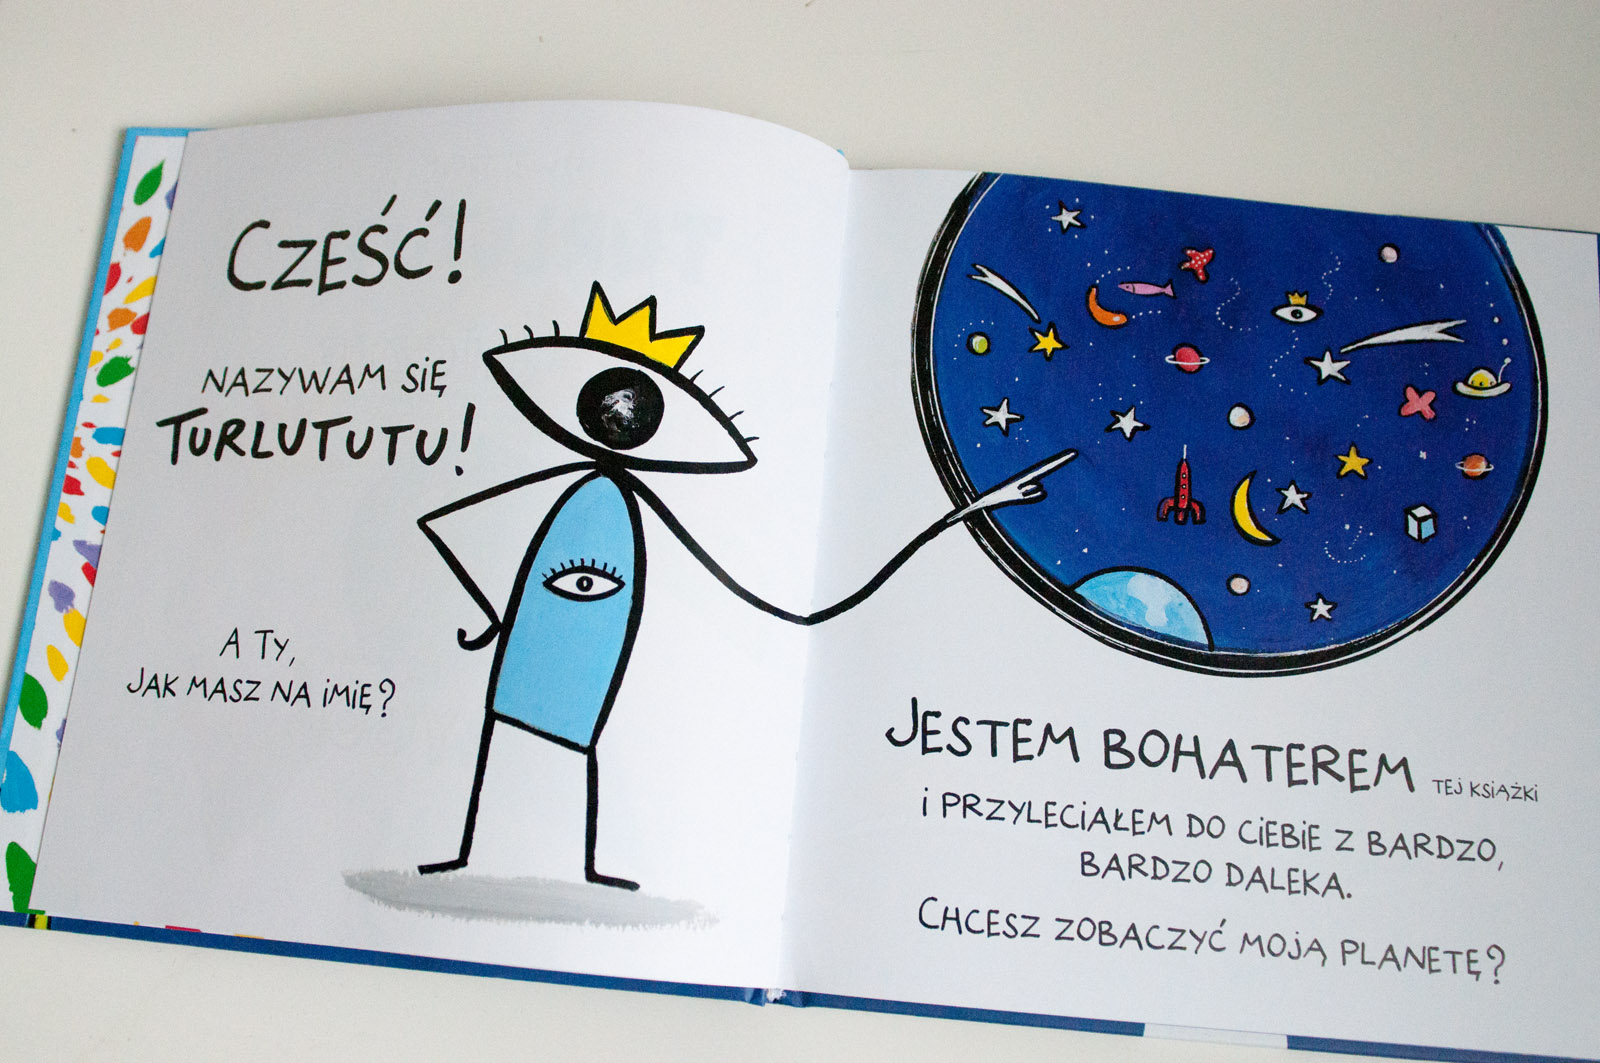 CZEŚĆ!
NAZYWAM SIĘ
TURLUTUTU!
A TY,
JAK MASZ NA IMIĘ?
JESTEM BOHATEREM TEJ KSIĄŻKI
I PRZYLECIAŁEM DO CIEBIE Z BARDZO,
BARDZO DALEKA.
CHCESZ ZOBACZYĆ MOJĄ PLANETĘ?